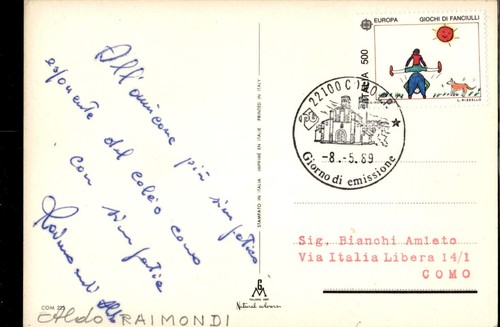 EUROPA GIOCHI DI FANCIULLI
ITALIA 500
22100 COMO
-8.-5.89
Giorno di emissione
All'amicone più simpatico
esponente del calcio como
con simpatia
Raimondi Aldo
STAMPATO IN ITALIA IMPRIMÉ EN ITALIE PRINTED IN ITALY
Sig. Bianchi Amleto
Via Italia Libera 14/1
COMO
Natural colours
COM 225
Aldo RAIMONDI